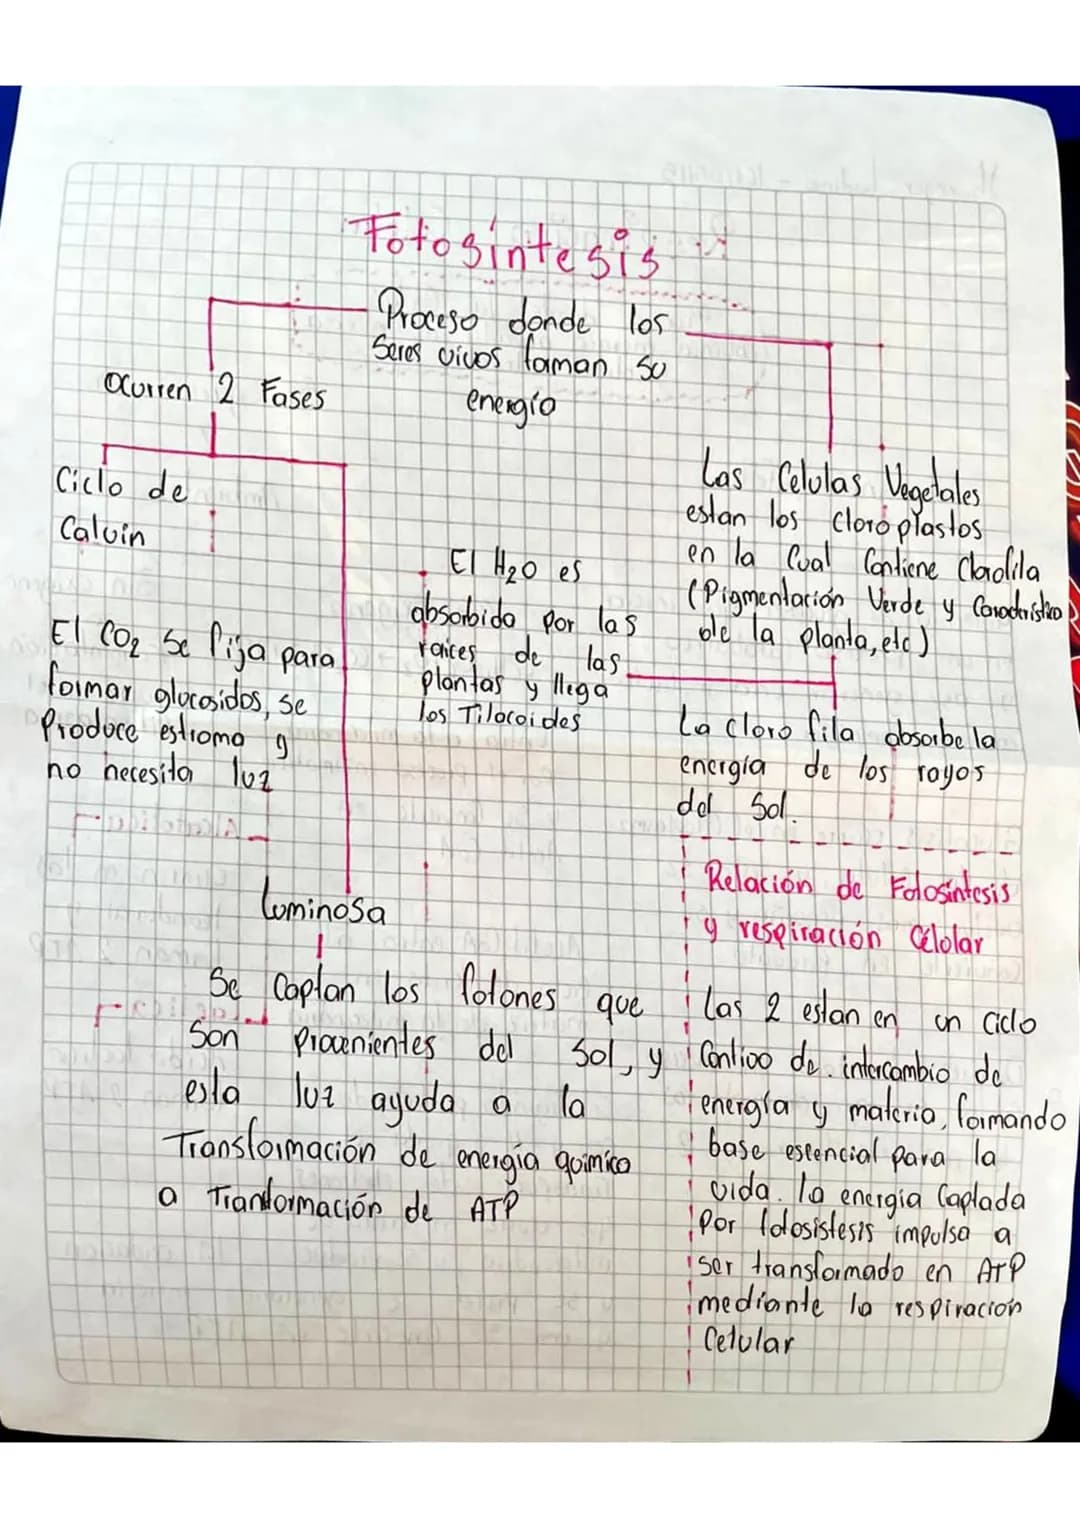 Fotosíntesis
Proceso donde los
Seres vivos toman su
energía
Ocurren 2 Fases
Ciclo de
Calvin
El CO2 Se fija para
formar glucosidos, se
Produce estroma y
no necesita luz
El H2O es
absorbida por las
raíces de las
plantas y llega
los Tilacoides
Las Celulas Vegetales
estan los Cloroplastos
en la Cual Contiene Clorofila
(Pigmentación Verde y Característico
de la planta, etc)
La Clorofila absorbe la
energía de los rayos
del Sol.
Luminosa
Se Captan los fotones que
Son Provenientes del Sol, y
esta luz ayuda a la
Transformación de energía química
a Tranformación de ATP
Relación de Fotosíntesis
y respiración Célular
Las 2 estan en un Ciclo
Contiuo de intercambio de
energía y materia, formando
base escencial para la
vida. la energía Captada
Por fotosistesis impulsa a
ser transformado en ATP
mediante la respiración
Celular